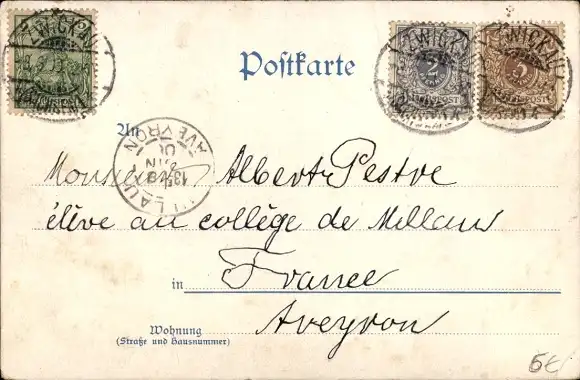 Postkarte
ZWICKAU
ZWICKAU
ZWICKAU
2
3
An
AVEYRON
Monsieur Albert Pestre
élève au collège de Millau
in France
Aveyron
Wohnung
(Straße und Hausnummer)
6€